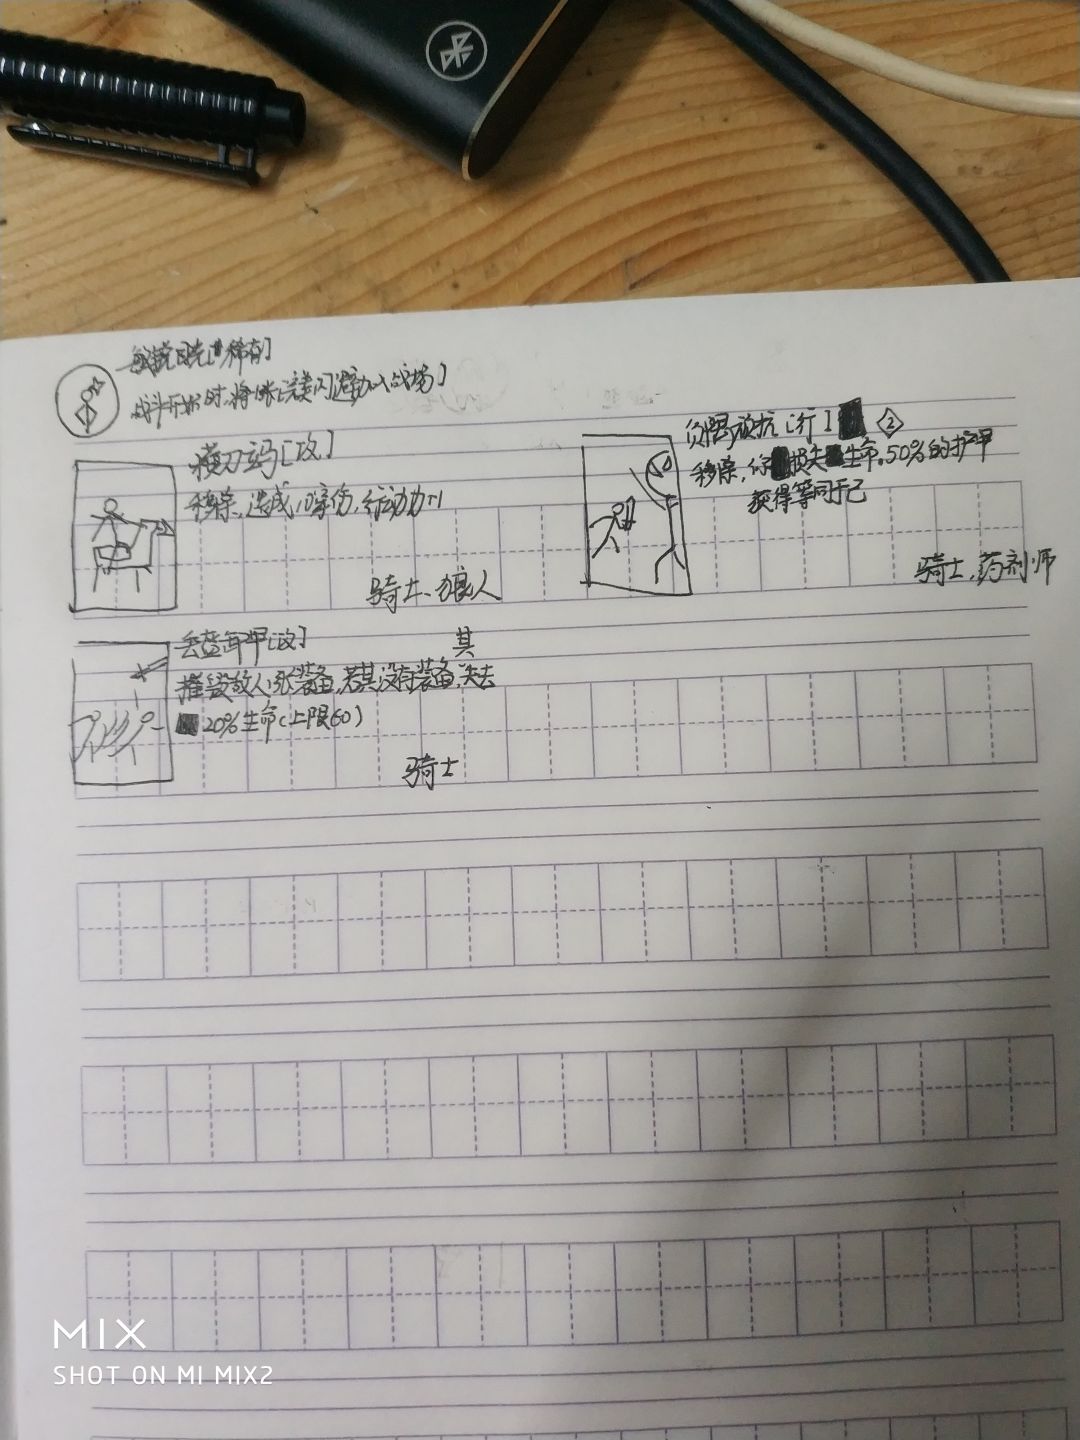 敏锐目光[稀有]
战斗开始时,将1张完美闪避加入战场
横刀立马[攻]
移除,造成10穿伤,行动力+1
骑士、狼人
负隅顽抗[行] 2
移除,你损失生命。50%的护甲
获得等同于己
骑士,药剂师
丢盔卸甲[攻]
其
摧毁敌人1张装备,若其没有装备,失去
20%生命(上限60)
骑士
MIX
SHOT ON MI MIX2